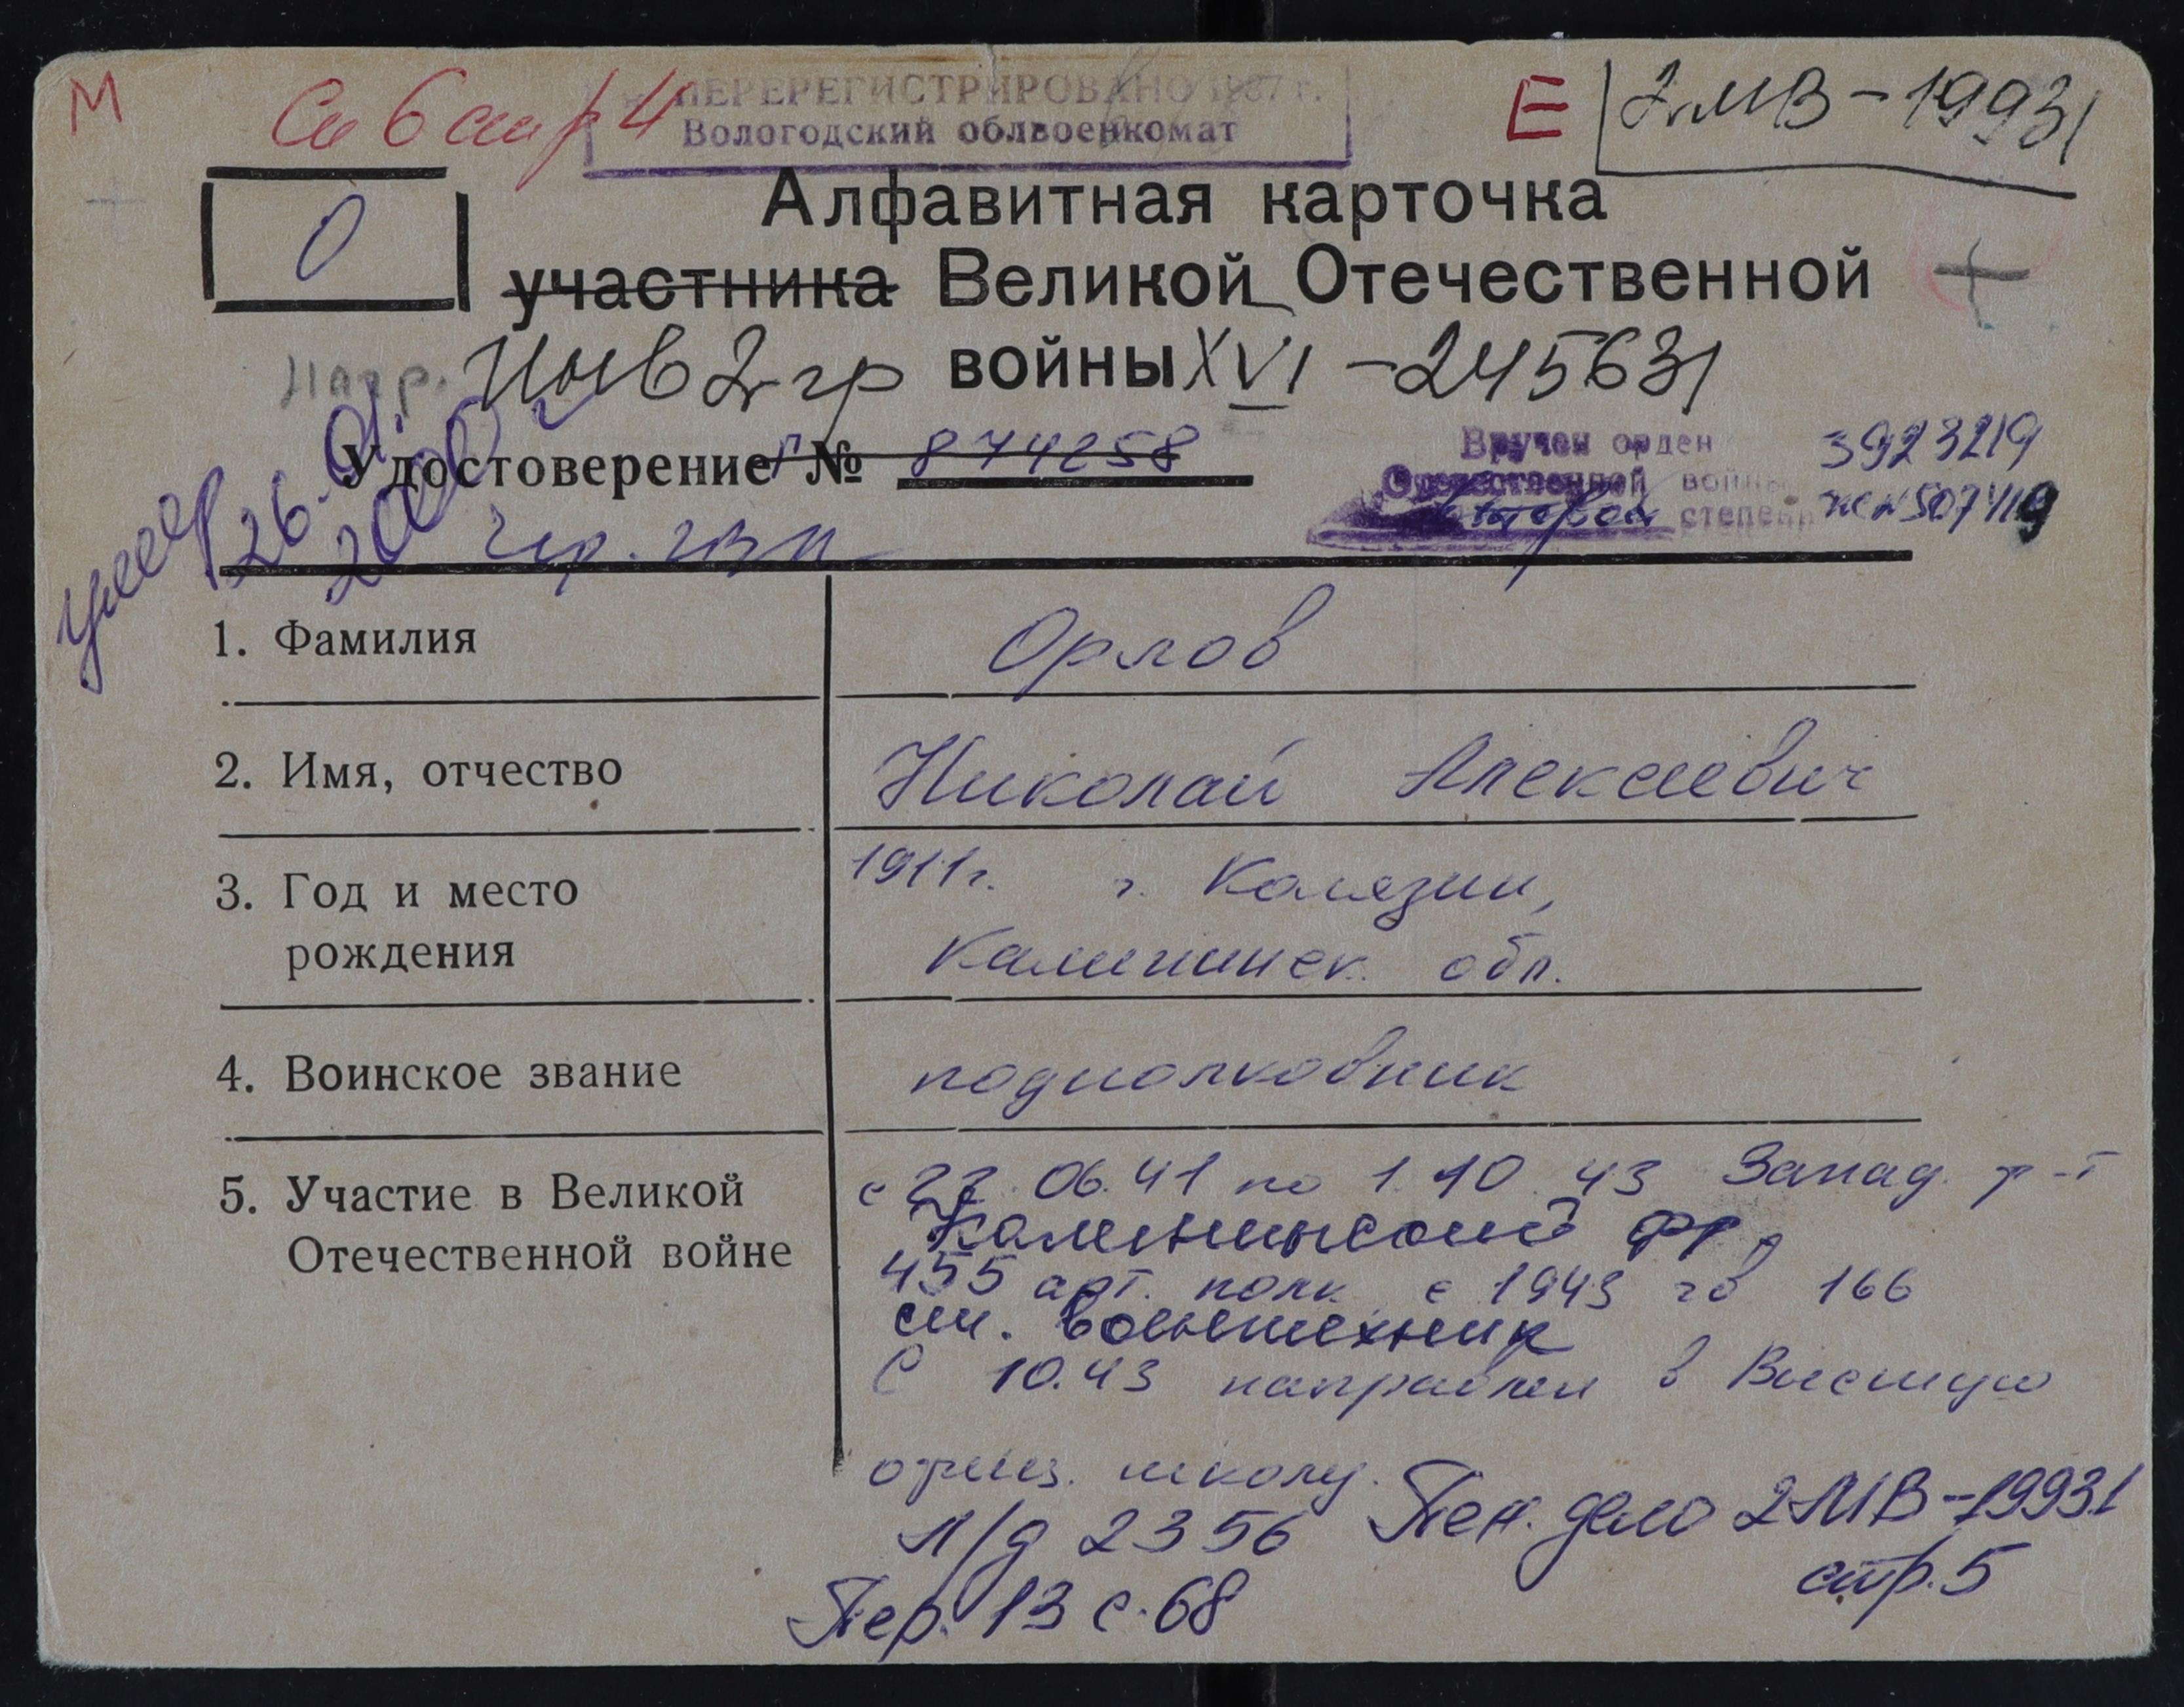 М
Св 6 стр 4
ПЕРЕРЕГИСТРИРОВАНО 1987 г.
Вологодский облвоенкомат
Е 2 МВ-19931
О
Алфавитная карточка
участника Великой Отечественной
Инв 2 гр войны XVI-245631
Удостоверение № 874258
умер 26.01. 2000 г
Вручен орден
Отечественной войны
второй степени
3923219
гр.
1. Фамилия
Орлов
2. Имя, отчество
Николай Алексеевич
3. Год и место
рождения
1911г. г. Калязин,
Калининск. обл.
4. Воинское звание
подполковник
5. Участие в Великой
Отечественной войне
с 22.06.41 по 1.10.43 Запад. ф-т
Калининский фр.
455 арт. полк с 1943 гв 166
ст. военетехник
С 10.43 направлен в Высшую
офиц. школу.
Л/д 2356 Пен. дело 2МВ-19931
стр. 5
Пер. 13 с. 68